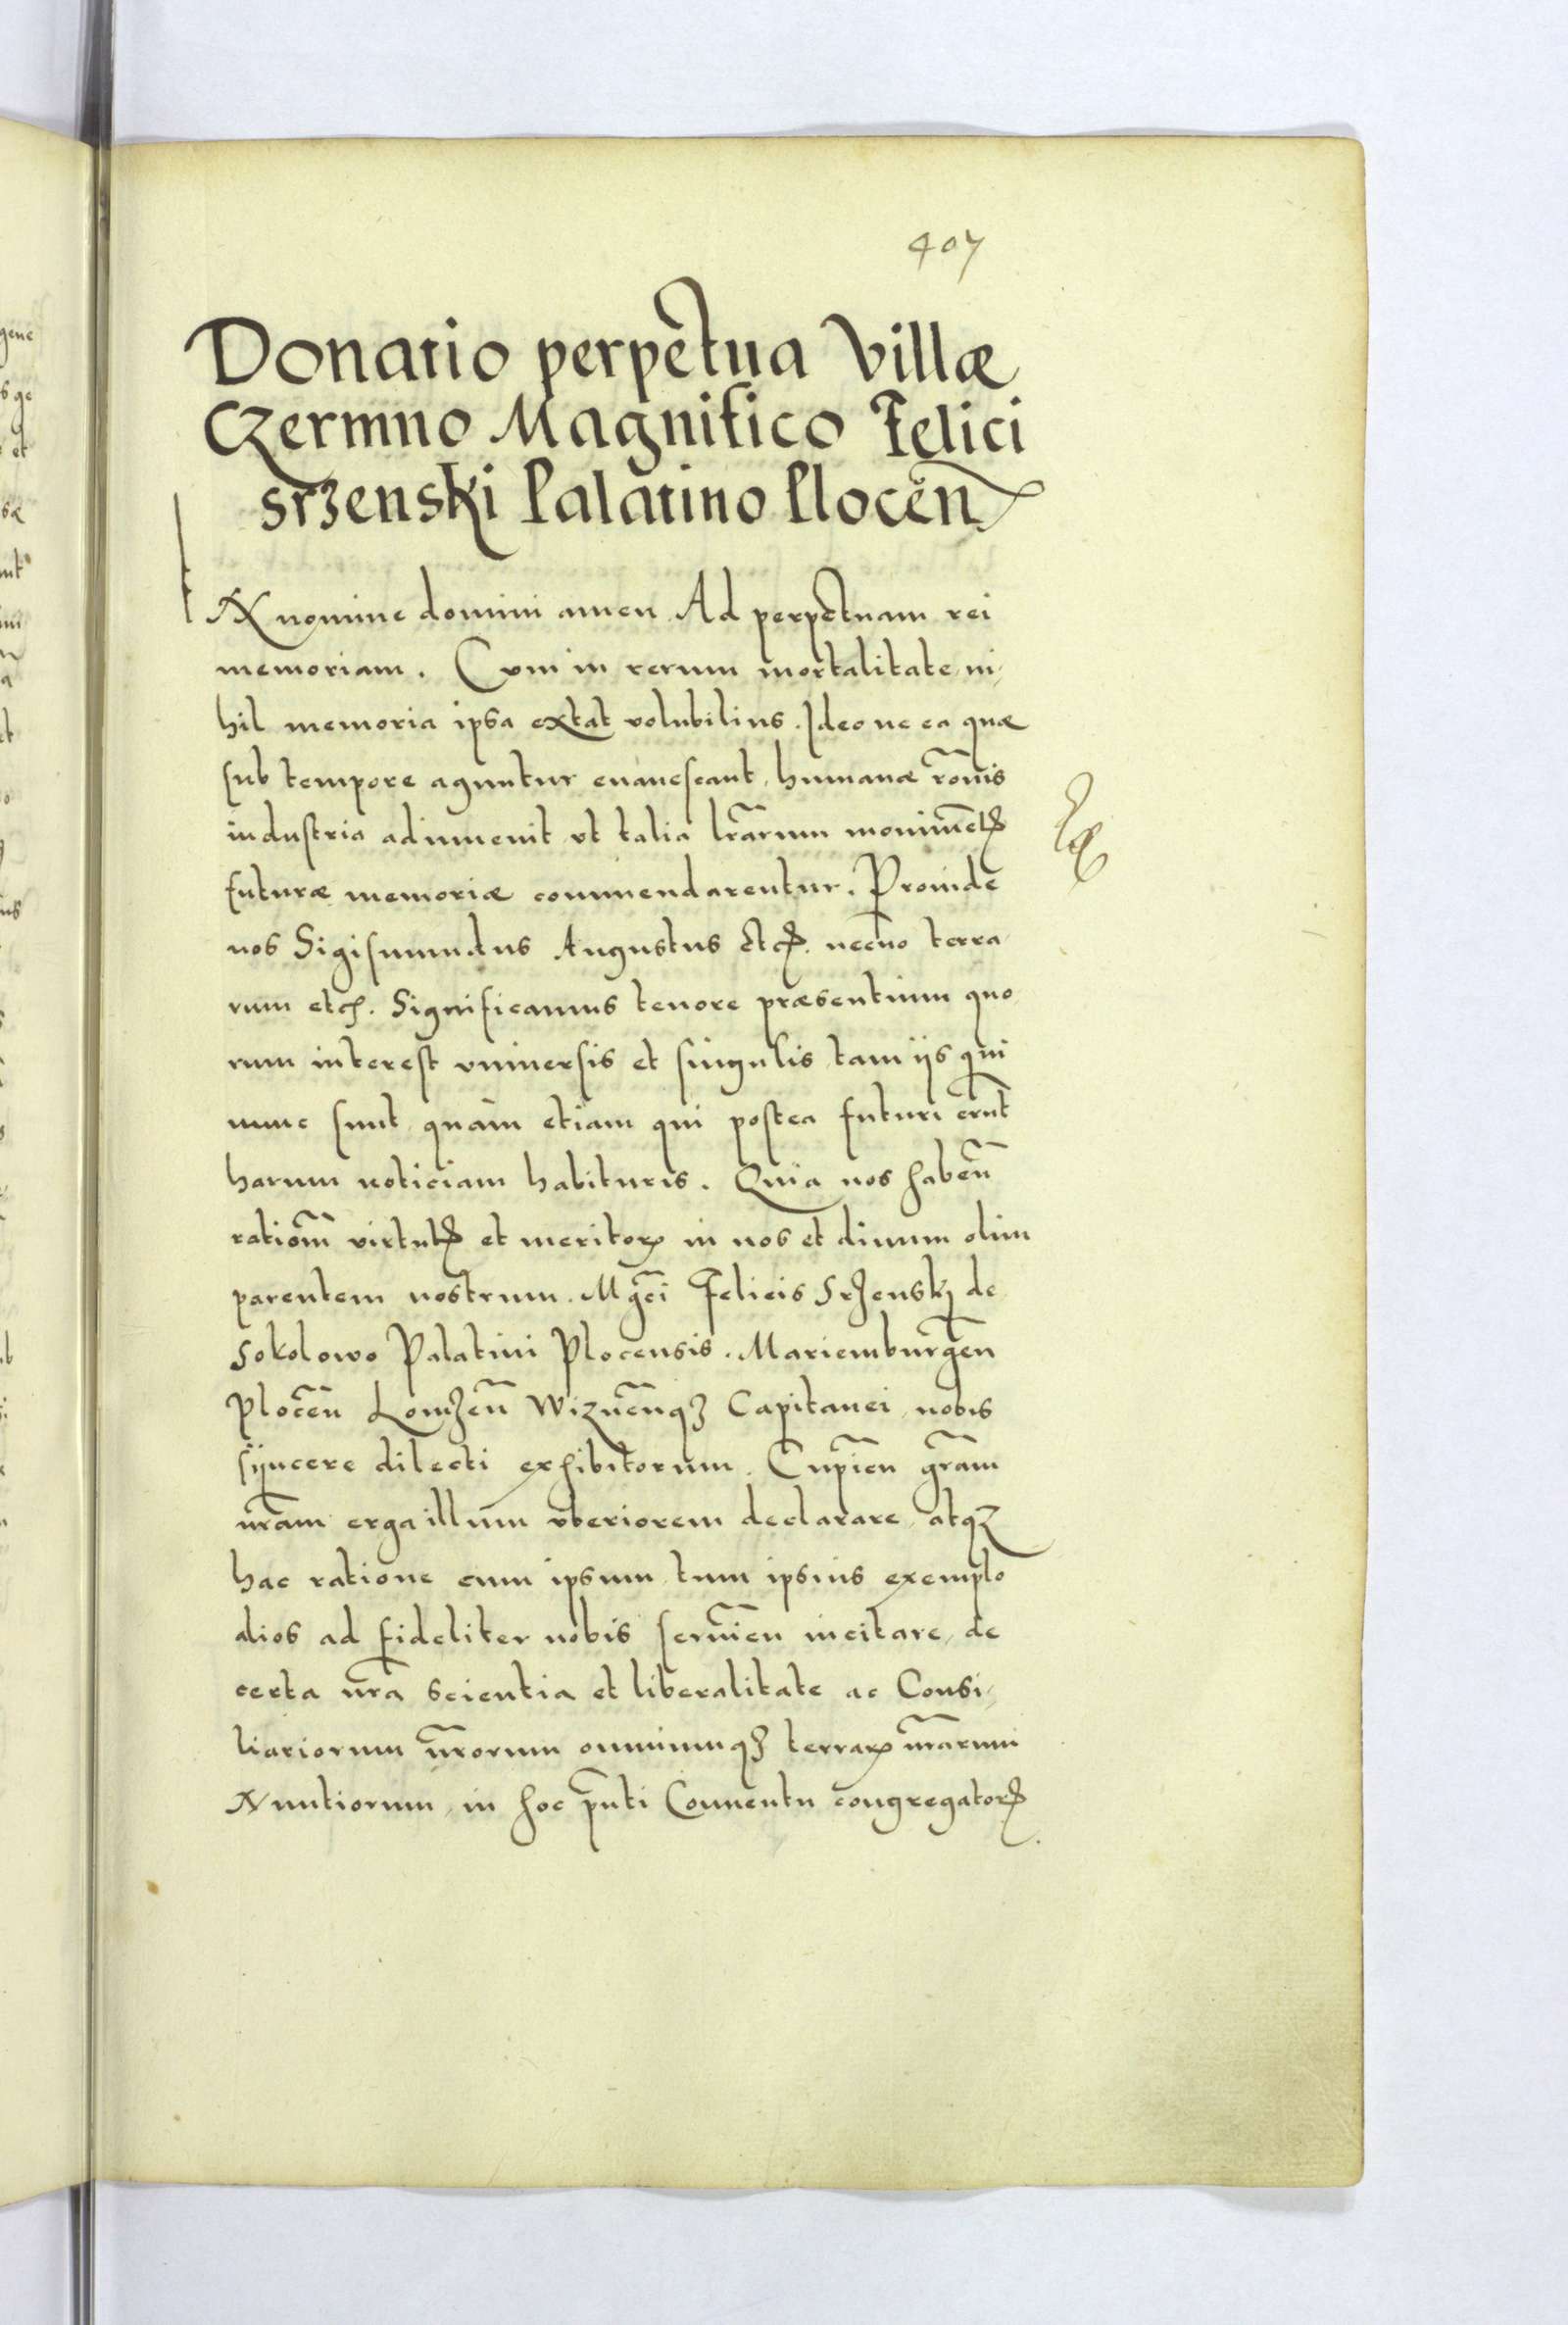 407
Donatio perpetua Villæ
Czermno Magnifico Felici
srzenski Palatino Plocen̄
IN nomine domini amen. Ad perpetuam rei
memoriam. Cum in rerum mortalitate ni,
hil memoria ipsa extat volubilius. Ideo ne ea quæ
sub tempore aguntur euanescant, humanæ rōnis
industria adinuenit, vt talia lr̄arum monimētꝭ
futuræ memoriæ commendarentur. Proinde
nos Sigismundus Augustus etcꝭ. necno terra
rum etcꝭ. Significamus tenore præsentium quo
rum interest vniuersis et singulis, tam ijs qui
nunc sunt, quàm etiam qui postea futuri erūt
harum noticiam habituris. Quia nos haben̄
ratiom̄ virtutꝭ et meritoꝝ in nos et diuum olim
parentem nostrum. Mgc̄i Felicis Srzenskj de
Sokolowo Palatini Plocensis. Mariemburgen̄
Plocen̄ Lomzen̄ Wiznen̄qꝫ Capitanei, nobis
sijncere dilecti exhibitorum. Cupien̄ gr̄am
nr̄am erga illum vberiorem declarare, atqꝫ
hac ratione cum ipsum, tum ipsius exemplo
alios ad fideliter nobis seruien̄ incitare, de
certa nr̄a scientia et liberalitate ac Consi,
liariorum nr̄orum omniumqꝫ terraꝝ nr̄arum
Nuntiorum, in hoc pn̄ti Conuentu congregatorꝭ.